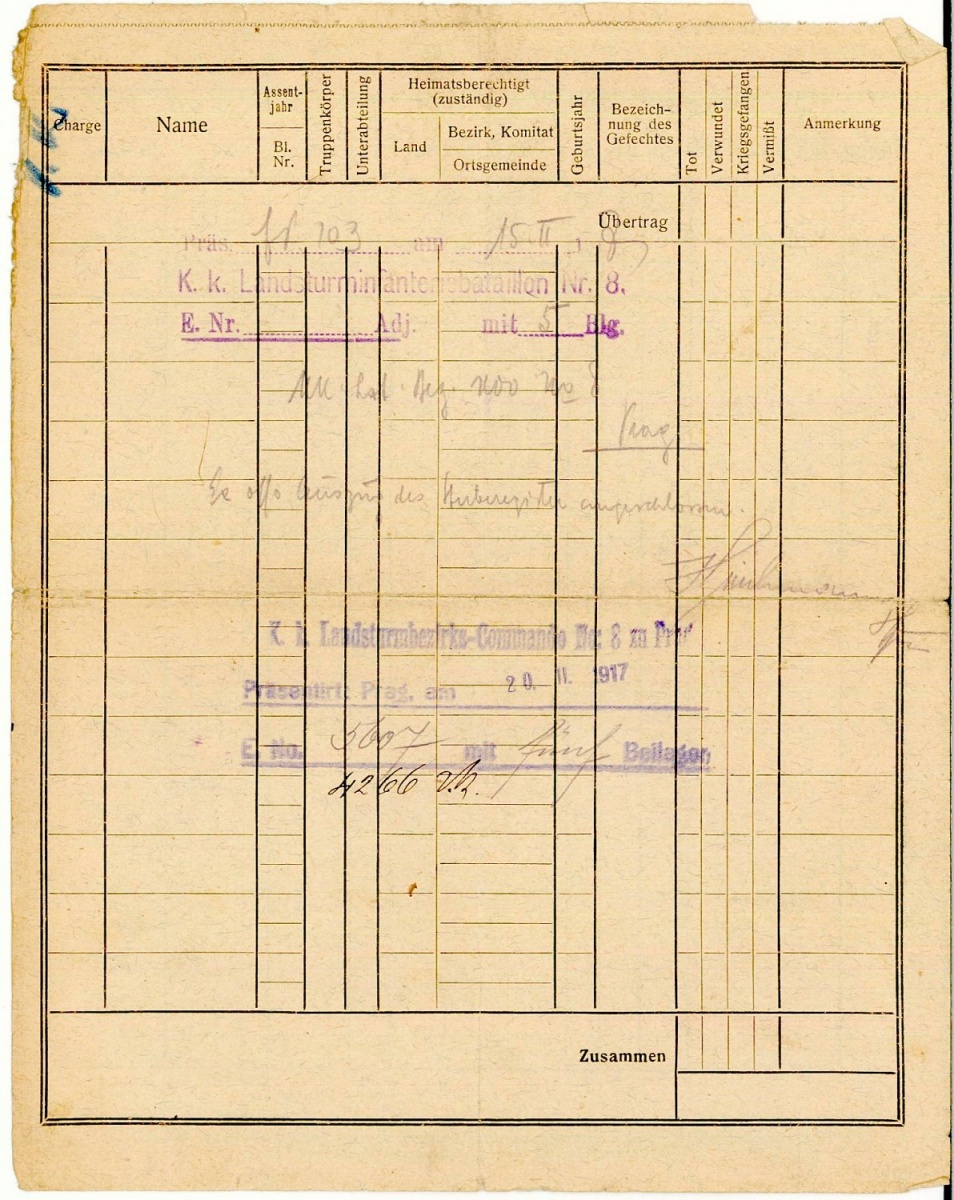 Charge Name Assent-jahr Bl. Nr. Truppenkörper Unterabteilung Heimatsberechtigt (zuständig) Land Bezirk, Komitat Ortsgemeinde Geburtsjahr Bezeich-nung des Gefechtes Tot Verwundet Kriegsgefangen Vermißt Anmerkung
Übertrag
Präs. 103 am 15 II
K. k. Landsturminfanteriebataillon Nr. 8.
E. Nr. Adj. mit 5 Blg.
No 8
Prag
Auszug des angeschlossen.
K. k. Landsturmbezirks-Commando No: 8 zu Prag
Präsentirt: Prag, am 20. II. 1917
E. No. 5607 mit fünf Beilagen
4266
Zusammen